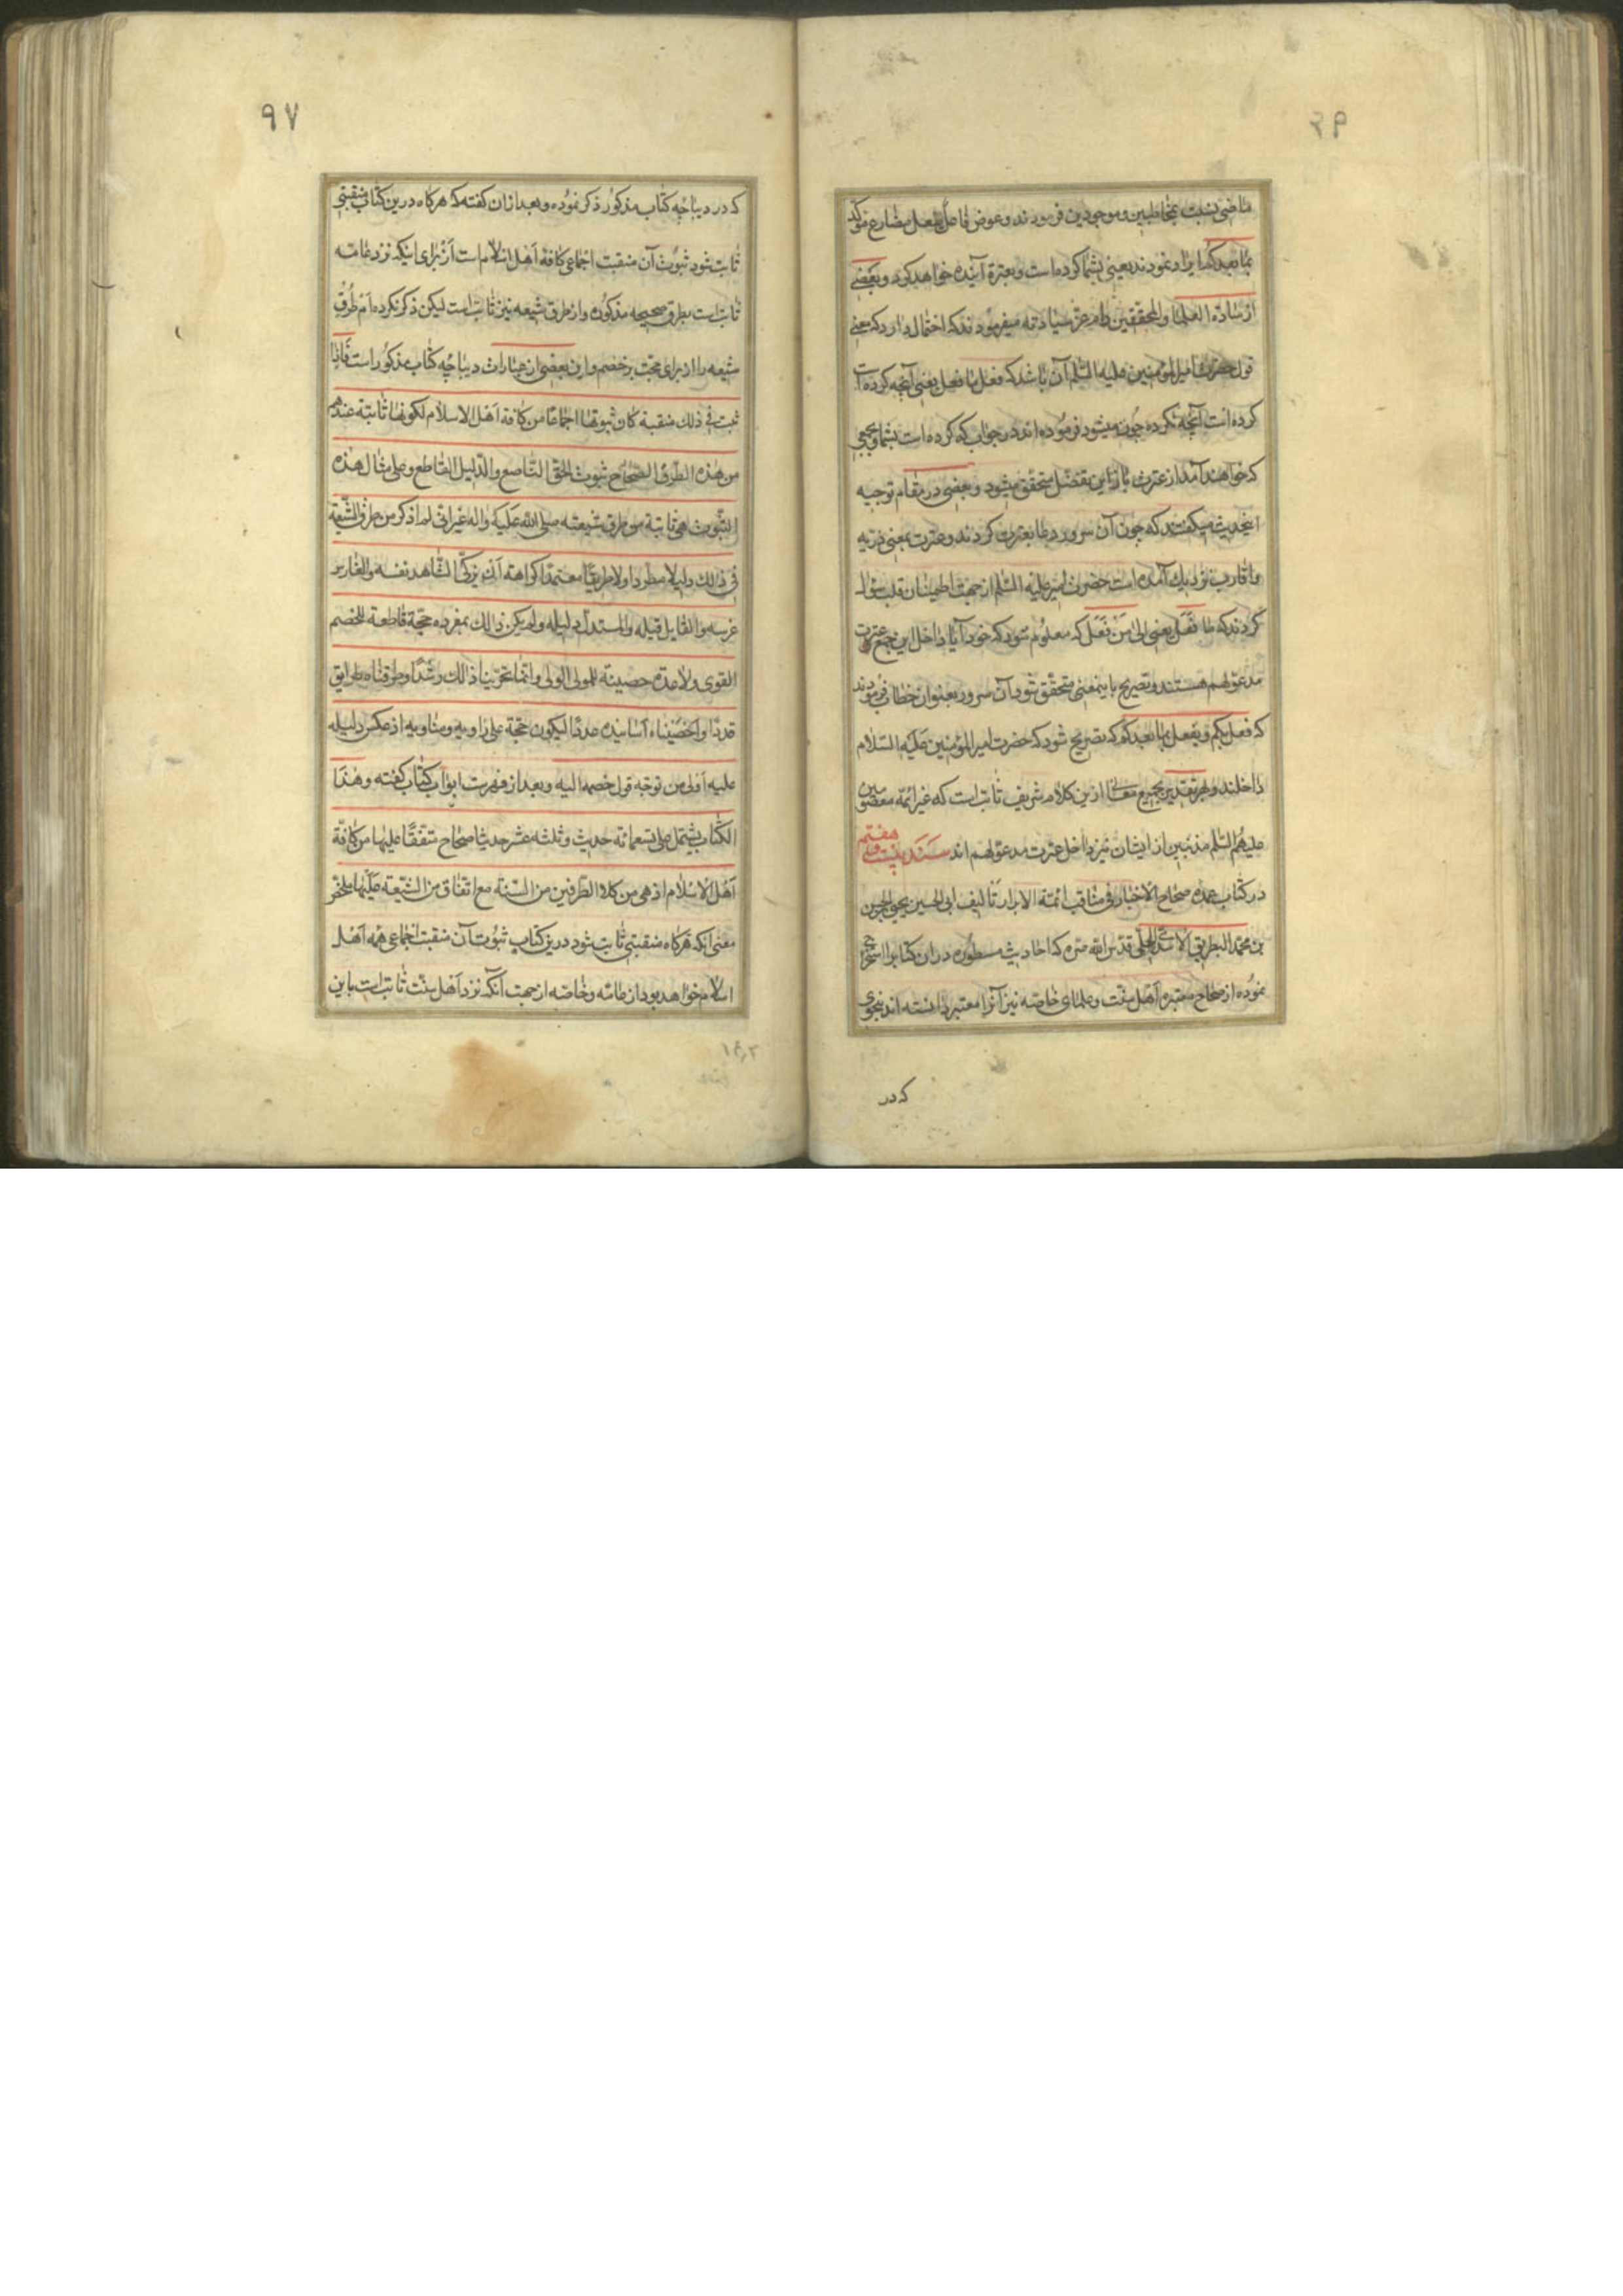 ماضی نسبت بمخاطبین و موجودین فرمودند و عوض فاصل بفعل مضارع مؤکد
بما بعدکم ایراد نمودند یعنی بشما کرده است و بعترة آینده خواهد کرد و بعضی
از سادة العلما والمحققین دام عز سیادته میفرمودند که احتمال دارد که معنی
قول حضرت امیرالمؤمنین علیه السلم آن باشد که فعل ما فعل یعنی آنچه کرده است
کرده است آنچه نکرده چون میشود فرموده اند در جواب که کرده است بشما و بجمعی
که خواهند آمد از عترت باز این تفضل متحقق میشود و بعضی در مقام توجیه
اینحدیث میکفتند که چون آن سرور دعا بعترت کردند و عترت بمعنی ذریه
واقارب نزدیک آمده است حضرت امیر علیه السلم از جهت اطمینان قلب سؤال
کردند که ما تفعل یعنی الی من تفعل که معلوم شود که خود آیا داخل این جمع عترت
مدعولهم هستند و تصریح باینمعنی متحقق شود آن سرور بعنوان خطاب فرمودند
که فعل بکم و یفعل بما بعدکم که تصریح شود که حضرت امیر المؤمنین علیه السلام
داخلند و بهر تقدیر بجمیع معانی ازین کلام شریف ثابت است که غیر ائمه معصومین
علیهم السلم مذنبین از ایشان نیز داخل عترت مدعولهم اند سند بیست و هفتم
در کتاب عمده صحاح الاخبار فی مناقب ائمة الابرار تالیف ابی الحسین یحیی بن الحسن
بن محمد البطریق الاسدی الحلی قدس الله سره که احادیث مسطوره دران کتابرا استخراج
نموده از صحاح معتبره اهل سنت و علمای خاصه نیز آنرا معتبر دانسته اند بنحوی
که در
۹۷
که در دیباچه کتاب مذکور ذکر نموده و بعد ازان کفته که هرکاه درین کتاب منقبتی
ثابت شود ثبوت آن منقبت اجماعی کافه اهل اسلام است از برای اینکه نزد عامه
ثابت است بطرق صحیحه مذکوره و از طرق شیعه نیز ثابت است لیکن ذکر نکرده ام طرق
شیعه را از برای حجت بر خصم و این بعضی از عبارات دیباچه کتاب مذکور است فاذا
ثبت فی ذلک منقبة کان ثبوتها اجماعا من کافة اهل الاسلام لکونها ثابتة عندهم
من هذه الطرق الصحاح ثبوت الحق الناصع والدلیل القاطع وعلی مثال هذه
الثبوت هی ثابتة من طرق شیعته صلی الله علیه واله غیر انی لم اذکر من طرق الشیعة
فی ذالک دلیلا مطردا ولا طریقا معتمدا کراهة ان یزکی الشاهد نفسه والغارس
غرسه والقایل قیله والمستدل دلیله ولم یکن ذالک بمفرده حجة قاطعة للخصم
القوی ولا عدة حصینة للمولی الولی وانما تحرینا ذالک رشدا وطرقناه طرایق
قددا واحصیناء اسانیده عددا لیکون حجة علی راویه ومناویه اذ عکس دلیله
علیه اولی من توجه قول خصمه الیه و بعد از فهرست ابواب کتاب کفته وهذا
الکتاب یشتمل علی تسعمائة حدیث وثلثه عشر حدیثا صحاح متفقا علیها من کافة
اهل الاسلام اذ هی من کلا الطرفین من السنة مع اتفاق من الشیعة علیها ملخص
معنی انکه هرکاه منقبتی ثابت شود درین کتاب ثبوت آن منقبت اجماعی همه اهل
اسلام خواهد بود از عامه و خاصه از جهت آنکه نزد اهل سنت ثابت است باین